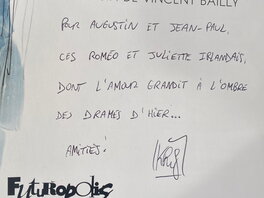 DE VINCENT BAILLY
POUR AUGUSTIN ET JEAN-PAUL,
CES ROMÉO ET JULIETTE IRLANDAIS,
DONT L'AMOUR GRANDIT À L'OMBRE
DES DRAMES D'HIER...
AMITIÉS!
FUTUROPOLIS